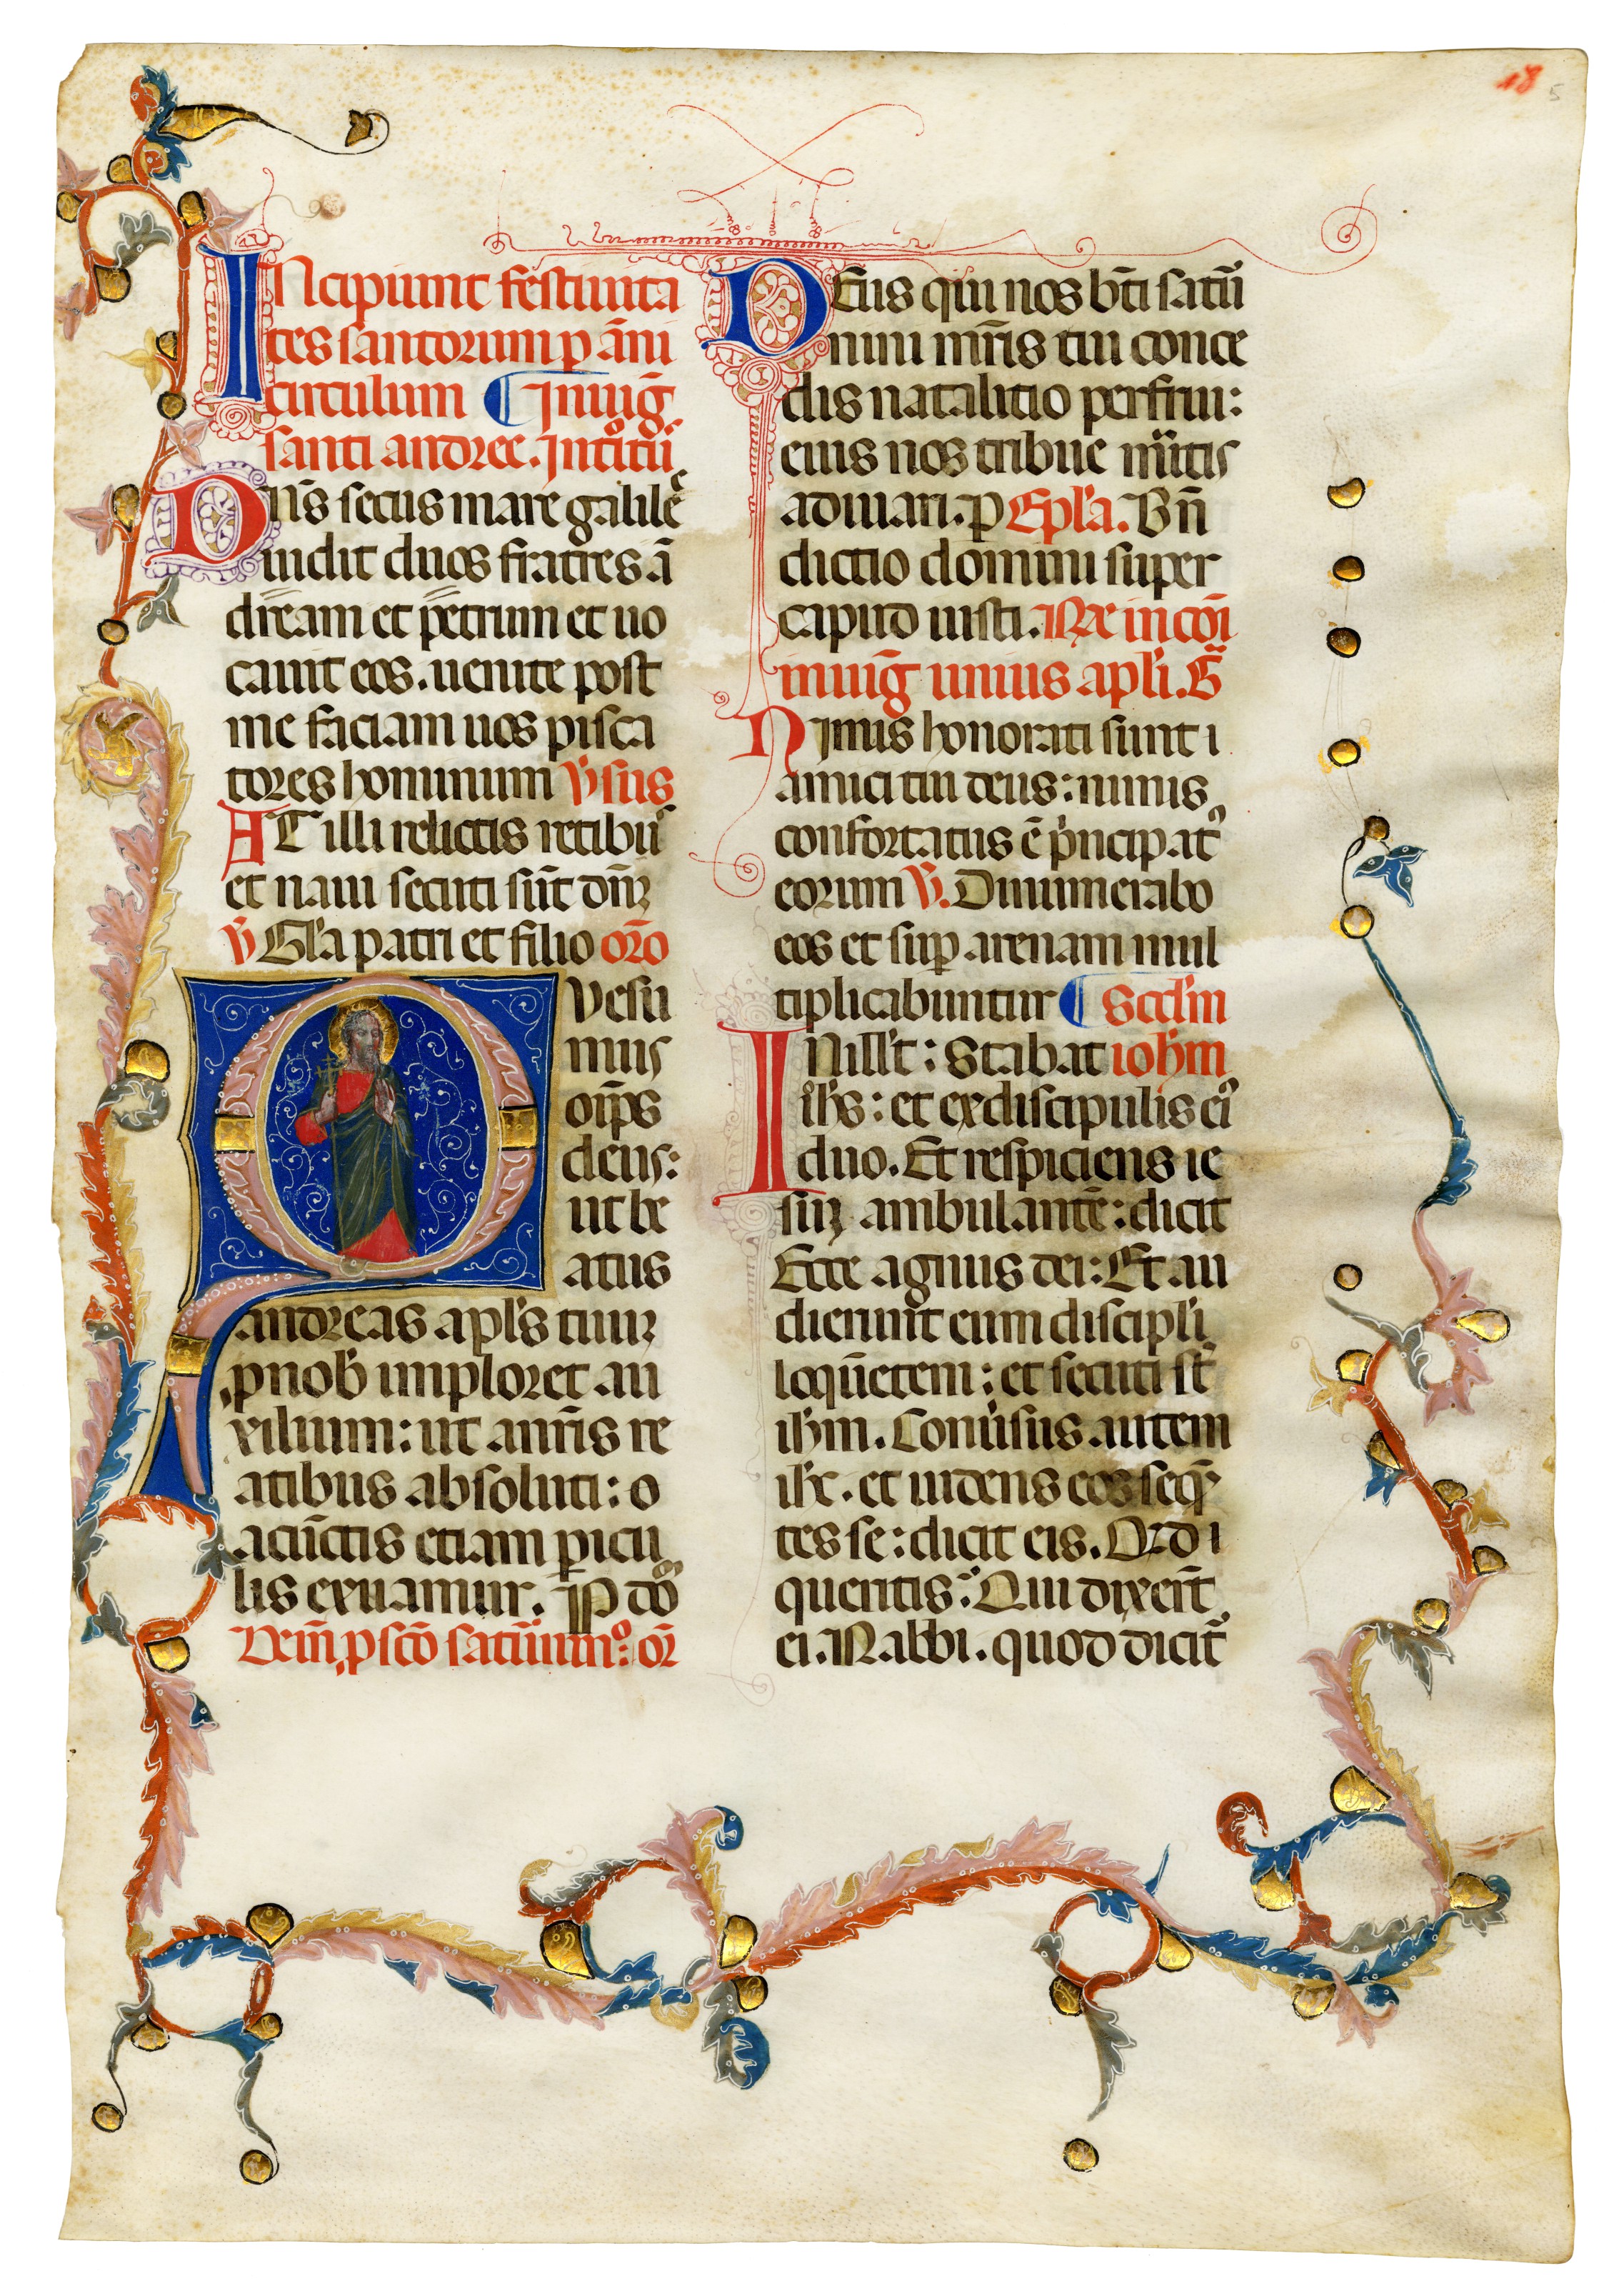 18
5
INcipiunt festiuita
tes santorum p āni
circulum ¶ Jn uiḡ
santi andree. Jntroitū
Dn̄s secus mare galilee
uidit duos fratres ā
dream et petrum et uo
cauit eos. uenite post
me faciam uos pisca
tores hominum v̄sus
AT illi relictis retibus
et naui secuti sūt dn̄ꝫ
v̄ Gl'a patri et filio orō
Quesu
mus
om̄ps
deus:
ut be
atus
andreas apl's tuuꝫ
ꝓ nob' imploret au
xilium: ut a nr̄is re
atibus absoluti: o
a cūctis etiam picu
lis exuamur. P dō
Dem̄ ꝓ scō saturnino: or̄
DEus qui nos bt̄i satur
nini mr̄is tui conce
dis natalitio perfrui:
eius nos tribue mr̄itis
adiuuari. p Epl'a. Bn̄
dictio domini super
capud iusti. Re in cōi
in uiḡ unius apl'i. G̃
Nimis honorati sunt i
amici tui deus: nimis
confortatus ē p'ncipat9
eorum v̄. Dinumerabo
eos et sup arenam mul
tiplicabuntur ¶ Scd'm
INill't: Stabat ioh'm
ioh's: et ex discipulis ei9
duo. Et respiciens ie
suꝫ ambulantē: dicit
Ecce agnus dei: Et au
dierunt eum discipl'i
loquētem: et secuti st̄
ih'm. Conu'sus autem
ih'c. et uidens eos seqn̄
tes se: dicit eis. Qrd i
queritis: Qui dixert̄
ei. Rabbi. quod dicit̄